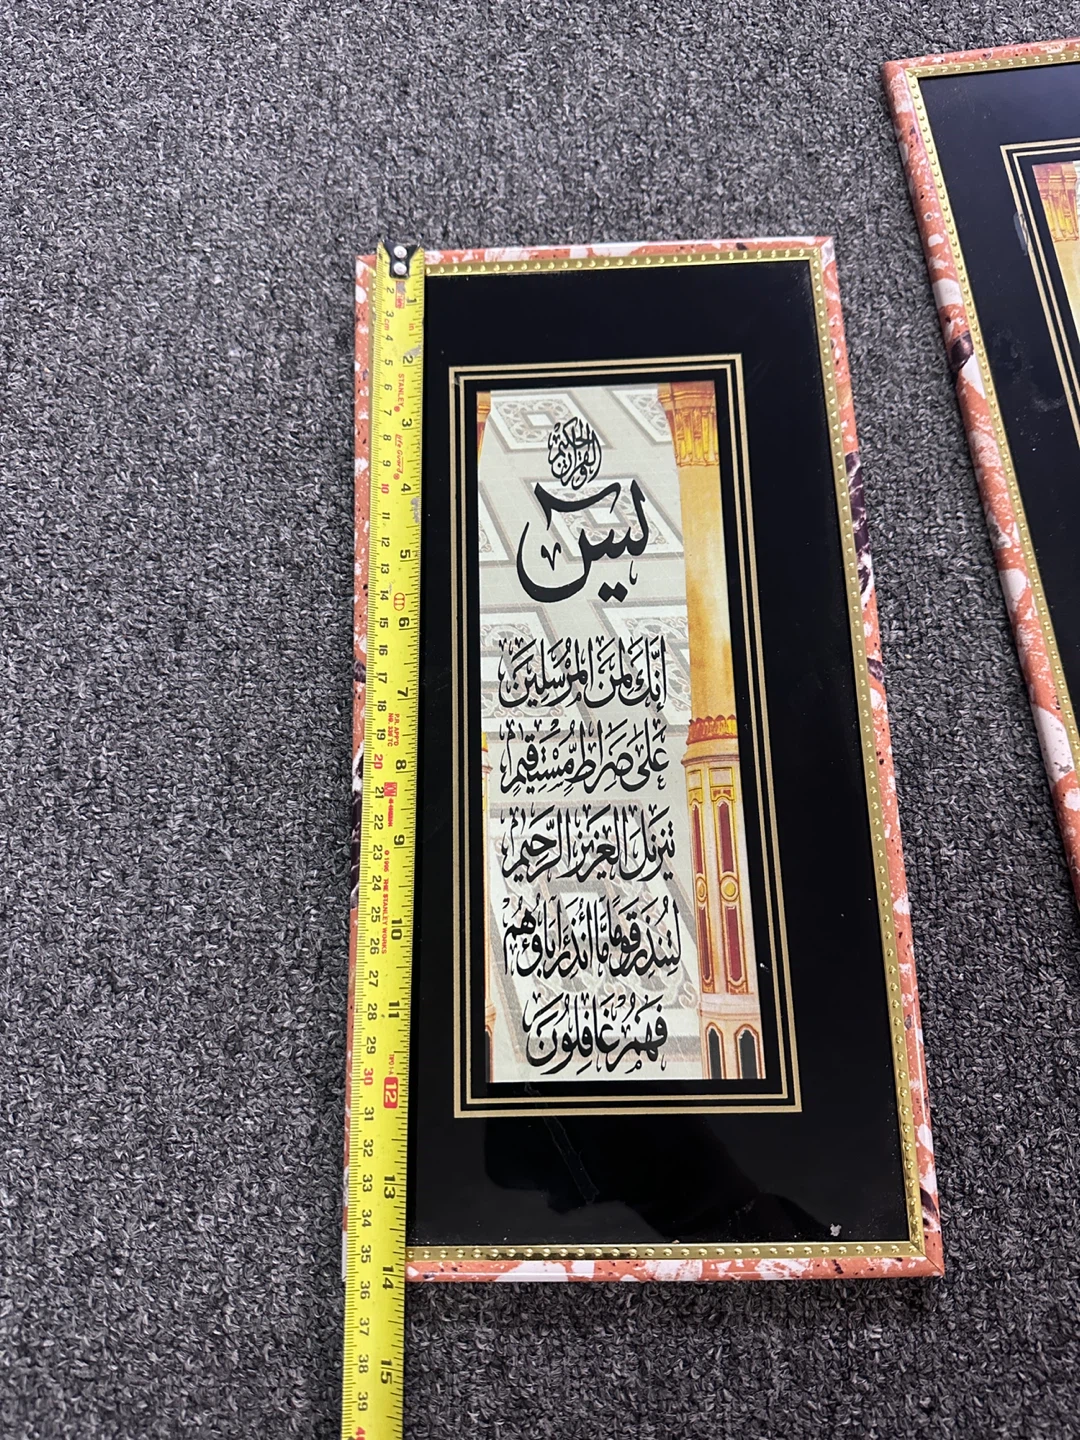 والقرآن الحكيم
يس
إِنَّكَ لَمِنَ المُرْسَلِينَ
عَلَى صِرَاطٍ مُّسْتَقِيمٍ
تَنزِيلَ العَزِيزِ الرَّحِيمِ
لِتُنذِرَ قَومًا مَّا أُنذِرَ آبَاؤُهُمْ
فَهُمْ غَافِلُونَ
STANLEY
1 2 3 4 5 6 7 8 9 10 11 12 13 14 15
2 3 4 5 6 7 8 9 10 11 12 13 14 15 16 17 18 19 20 21 22 23 24 25 26 27 28 29 30 31 32 33 34 35 36 37 38 39
cm
in
© 1995 THE STANLEY WORKS